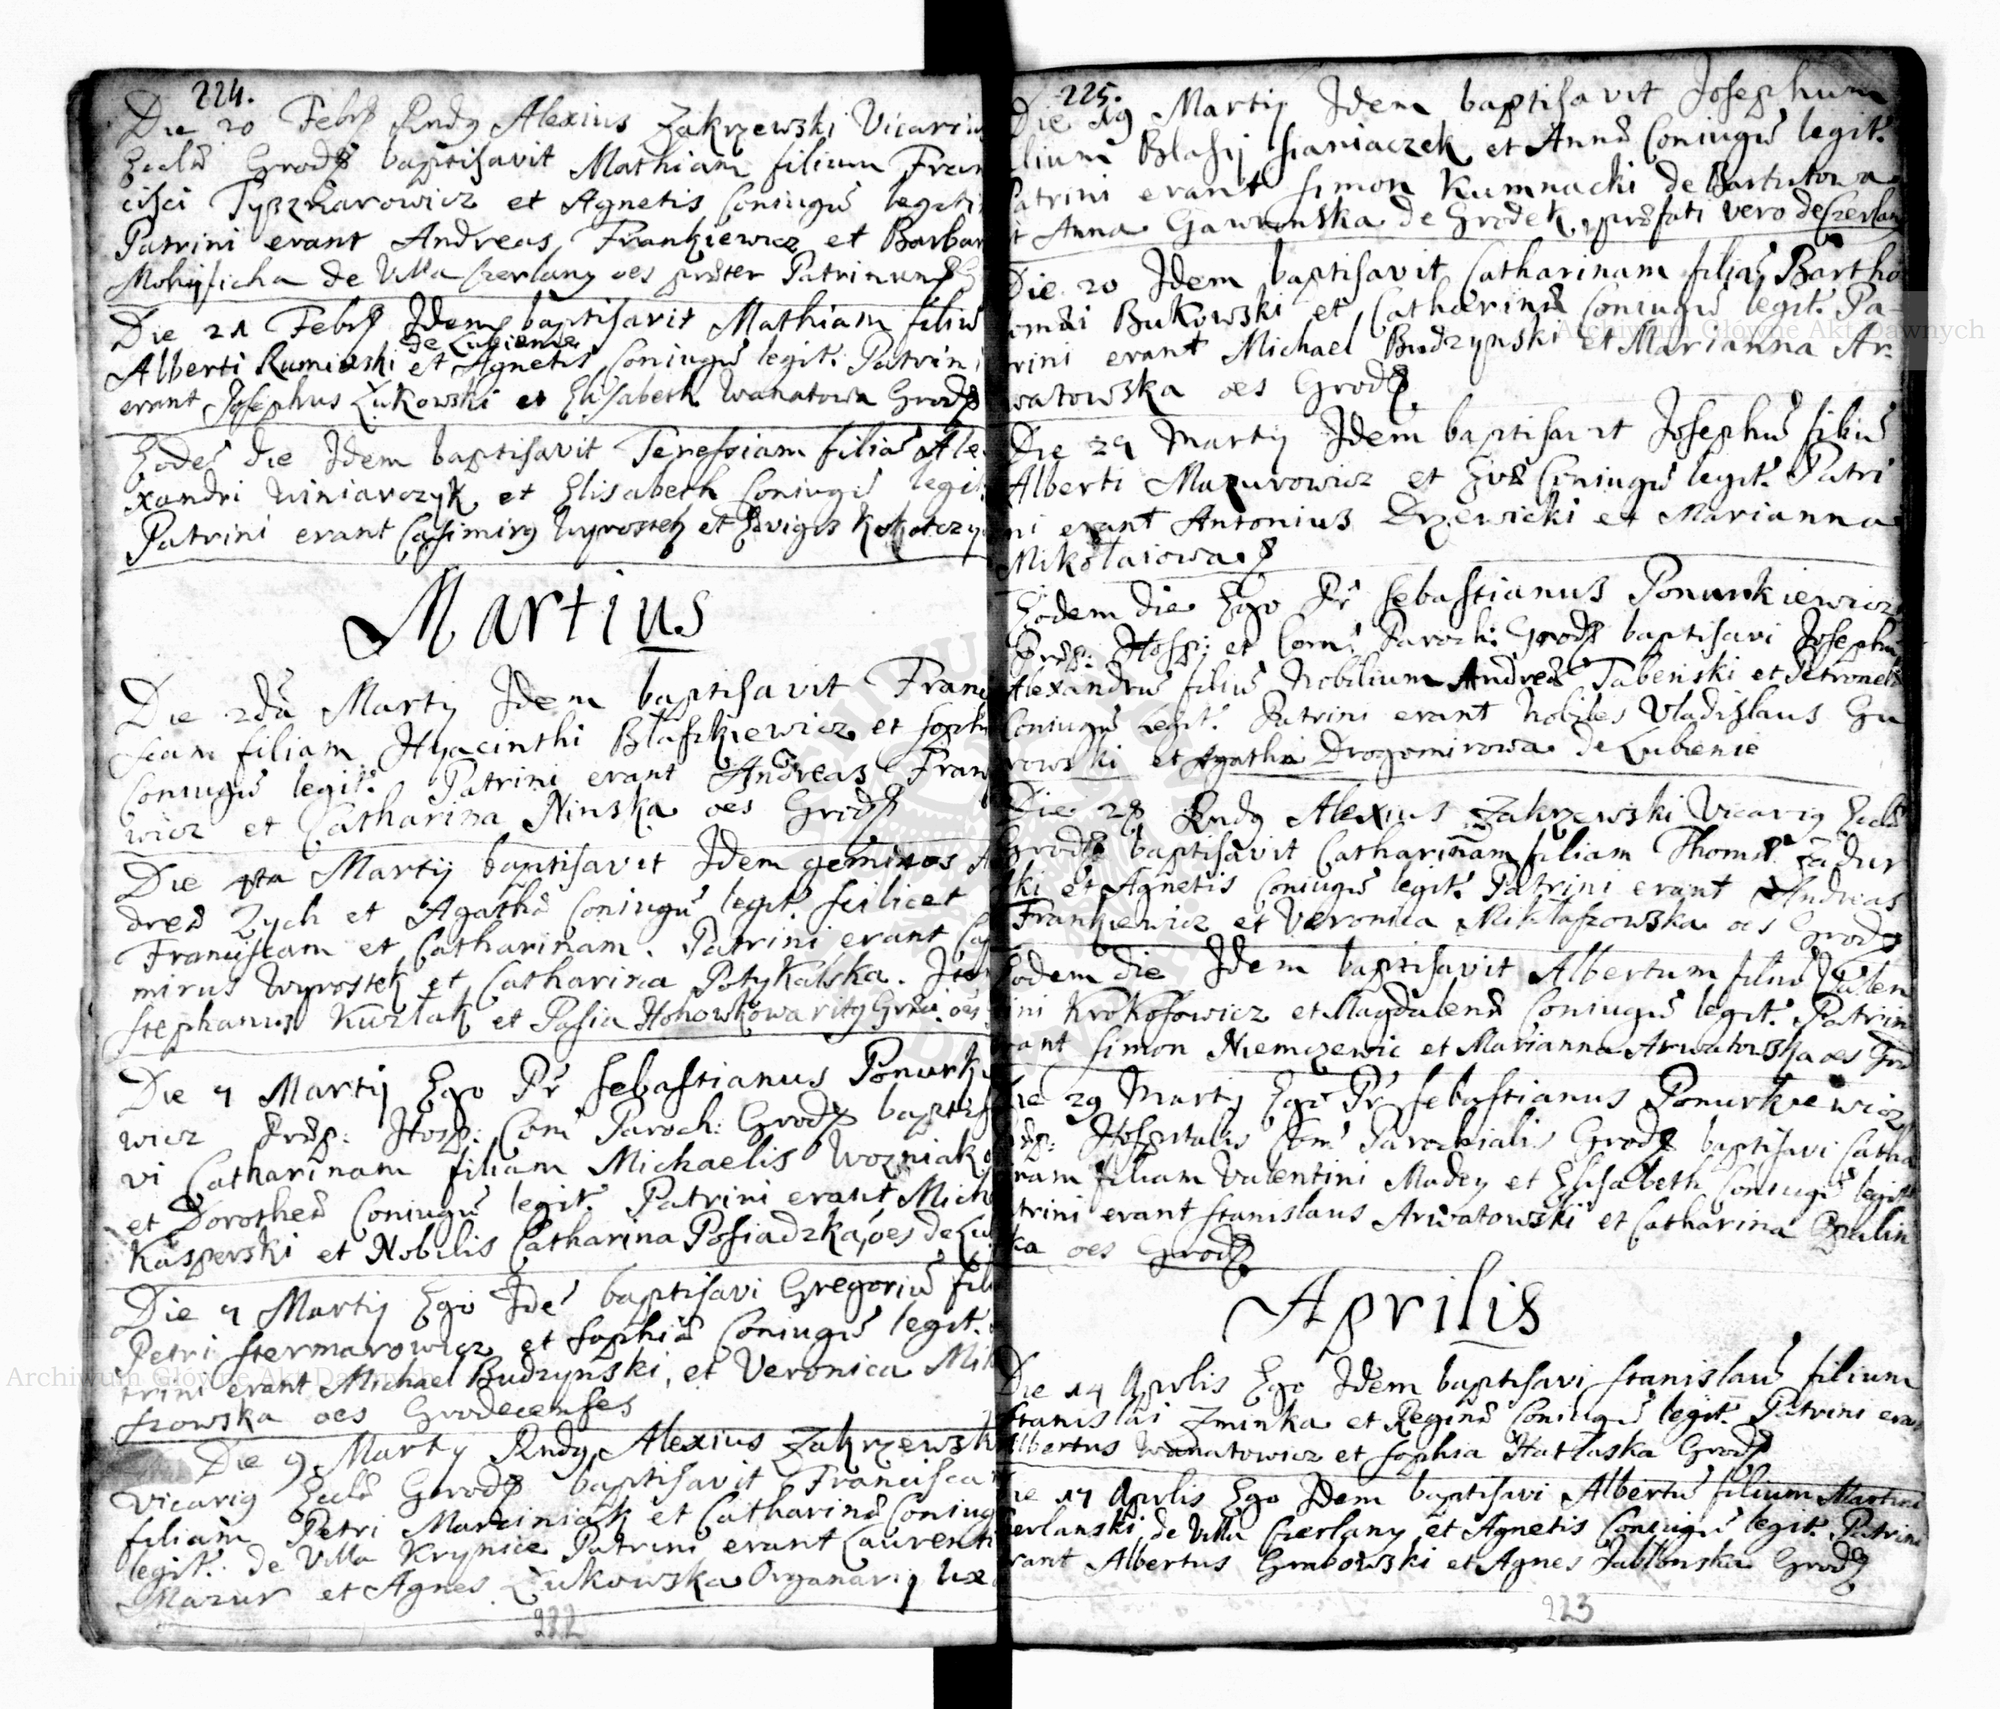 224.
Die 20 Febr Rndg Alexius Zakrzewski Vicarius
Grod baptisavit Mathiam filium Fran
cisci et Agnetis Coniugu legiti
Patrini erant Andreas Frankiewicz et Barbar
de Villa Czerlany oes Patrinum
Die 21 Febr Idem baptisavit Mathiam filiu
de Lubienie
Alberti Rumieski et Agnetis Coniugu legit. Patrini
erant Josephus Zukowski et Elisabeth Wanatowa Grod
Eode die Idem baptisavit Teressiam filia Ale
xandri Winiarczyk et Elisabeth Coniugu legit.
Patrini erant Casimirg Wyrostek et
Martius
Die 2da Martij Idem baptisavit Franci
scam filiam Hyacinthi Blaszkiewicz et Soph
Coniugu legit. Patrini erant Andreas Fran
wicz et Catharina Ninska oes Grod
Die Martij baptisavit Idem geminos An
drea Zych et Agatha Coniugu legit. scilicet
Franciscam et Catharinam. Patrini erant Casi
mirus Wyrostek et Catharina Potykalska. Item
Stephanus Kuzlak et Pasia
Die 7 Martij Ego Pr Sebastianus Ponurkie
wicz Prep: Hosp: Com Paroch: Grod baptisa
vi Catharinam filiam Michaelis Wozniak
et Dorothea Coniugu legit. Patrini erant Mich
Kasperski et Nobilis Catharina Posiadzka, oes de Lu
Die 7 Martij Ego Ide baptisavi Gregoriu fili
Petri Stermarowicz et Sophia Coniugu legit.
trini erant Michael Budzynski, et Veronica Mik
szowska oes Grodecenses
Die 9 Martij Rndg Alexius Zakrzewski
Vicarig Grod baptisavit Francisca
filiam Petri Marciniak et Catharina Coniug
legit. de Villa Krynice Patrini erant Laurenti
Mazur et Agnes Zukowska Organarij Ux
222
225.
Die 19 Martij Idem baptisavit Josephum
lium Blasij Staniaczek et Anna Coniugu legit.
Patrini erant Simon Kumnacki de Bartatowa
t Anna Gawronska de Grodek, prefati vero de Czerlan
Die 20 Idem baptisavit Catharinam filia Bartho
lomei Bukowski et Catharina Coniugu legit. Pa-
trini erant Michael Budzynski et Marianna Ar-
watowska oes Grod
Die 24 Martij Idem baptisavit Josephu filiu
Alberti Mazurowicz et Eva Coniugu legit. Patri
ni erant Antonius Drzewicki et Marianna
Mikołaiowa
Eodem die Ego Pr Sebastianus Ponurkiewicz
Prep: Hosp: et Com Paroch: Grod baptisavi Josephu
Alexandru filiu Nobilium Andrea Tabenski et Petronela
Coniugu Legit. Patrini erant Nobiles Vladislaus Gu
rowski et Agatha Drogomirowa de Lubienie
Die 28 Rndg Alexius Zakrzewski Vicarig
Grod baptisavit Catharinam filiam Thoma Zadur
ski et Agnetis Coniugu legit. Patrini erant Andreas
Frankiewicz et Veronica Mikłaszowska oes Grod
Eodem die Idem baptisavit Albertum filiu Valen
tini Krokosowicz et Magdalena Coniugu legit. Patrini
rant Simon Niemczewic et Marianna Arwatowska oes Grod
Die 29 Martij Ego Pr Sebastianus Ponurkiewicz
Prep: Hospitalis Com Parochialis Grod baptisavi Catha
rinam filiam Valentini Madey et Elisabeth Coniugu legit
trini erant Stanislaus Arwatowski et Catharina
ka oes Grod
Aprilis
Die 14 Aprlis Ego Idem baptisavi Stanislau filium
Stanislai Zminka et Regina Coniugu legit. Patrini eran
Albertus Wanatowicz et Sophia Hatłaska Grod
Die 17 Aprlis Ego Idem baptisavi Albertu filium Martini
Czerlanski, de Villa Czerlany et Agnetis Coniugu legit. Patrini
erant Albertus Grabowski et Agnes Jabłonska Grod
223
Archiwum Główne Akt Dawnych
Archiwum Główne Akt Dawnych